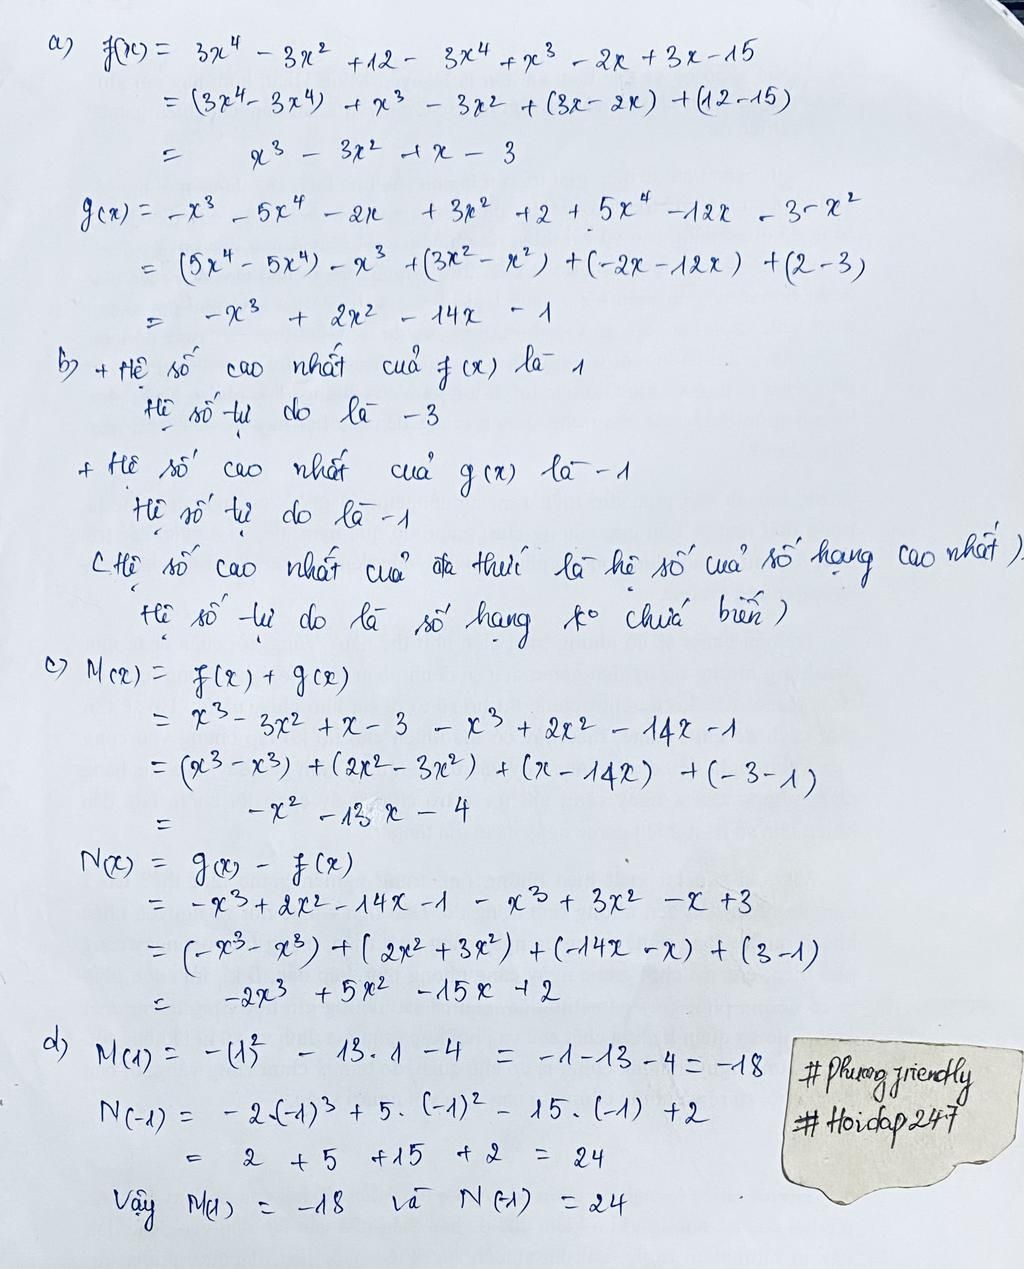 a) f(x) = 3x⁴ - 3x² + 12 - 3x⁴ + x³ - 2x + 3x - 15
= (3x⁴ - 3x⁴) + x³ - 3x² + (3x - 2x) + (12 - 15)
= x³ - 3x² + x - 3
g(x) = -x³ - 5x⁴ - 2x + 3x² + 2 + 5x⁴ - 12x - 3 - x²
= (5x⁴ - 5x⁴) - x³ + (3x² - x²) + (-2x - 12x) + (2 - 3)
= -x³ + 2x² - 14x - 1
b) + Hệ số cao nhất của f(x) là 1
Hệ số tự do là -3
+ Hệ số cao nhất của g(x) là -1
Hệ số tự do là -1
(Hệ số cao nhất của đa thức là hệ số của số hạng cao nhất)
Hệ số tự do là số hạng ko chứa biến)
c) M(x) = f(x) + g(x)
= x³ - 3x² + x - 3 - x³ + 2x² - 14x - 1
= (x³ - x³) + (2x² - 3x²) + (x - 14x) + (-3 - 1)
= -x² - 13x - 4
N(x) = g(x) - f(x)
= -x³ + 2x² - 14x - 1 - x³ + 3x² - x + 3
= (-x³ - x³) + (2x² + 3x²) + (-14x - x) + (3 - 1)
= -2x³ + 5x² - 15x + 2
d) M(1) = -(1)² - 13.1 - 4 = -1 - 13 - 4 = -18
N(-1) = -2.(-1)³ + 5.(-1)² - 15.(-1) + 2
= 2 + 5 + 15 + 2 = 24
Vậy M(1) = -18 và N(-1) = 24
#Phuongfriendly
#Hoidap247